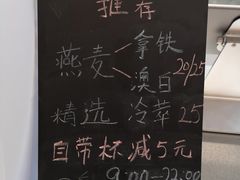 推荐
燕麦 拿铁
澳白 20/25
精选 冷萃 25
自带杯减5元
9:00-22:00